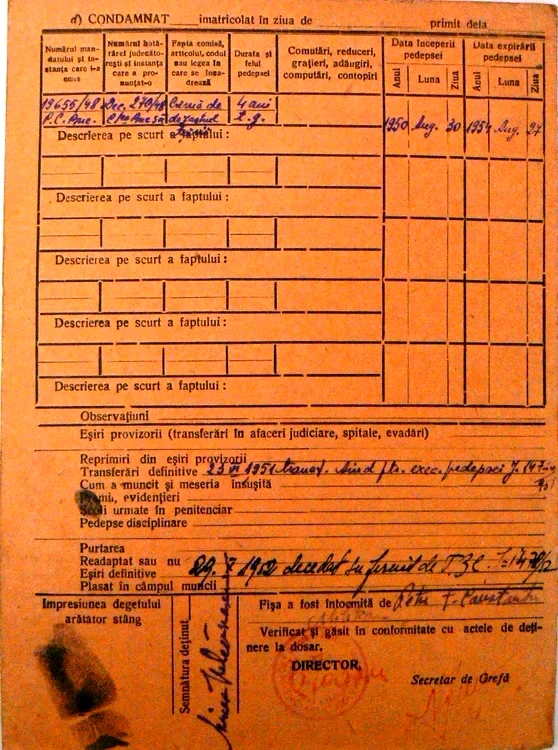 d) CONDAMNAT imatricolat în ziua de primit dela
Numărul mandatului și instanța care l-a emis
Numărul hotărârei judecătorești și instanța care a pronunțat-o
Fapta comisă, articolul, codul sau legea în care se încadrează
Durata și felul pedepsei
Comutări, reduceri, grațieri, adăugiri, computări, contopiri
Data începerii pedepsei
Data expirării pedepsei
Anul Luna Ziua Anul Luna Ziua
19655/48 Dec. 270/48 Crimă de 4 ani
P.C. Buc. t.g.
1950 Aug. 30 1954 Aug. 27
Descrierea pe scurt a faptului:
Descrierea pe scurt a faptului:
Descrierea pe scurt a faptului:
Descrierea pe scurt a faptului:
Descrierea pe scurt a faptului:
Observațiuni
Eșiri provizorii (transferări în afaceri judiciare, spitale, evadări)
Reprimiri din eșiri provizorii
Transferări definitive 23 VI 1951 transf. Aiud ptr. exec. pedepsei
Cum a muncit și meseria însușită
Premii, evidențieri
Școli urmate în penitenciar
Pedepse disciplinare
Purtarea
Readaptat sau nu
Eșiri definitive 29. X 1952 decedat de T.B.C.
Plasat în câmpul muncii
Impresiunea degetului arătător stâng
Semnătura deținut
Fișa a fost întocmită de Petre F. Constantin
Verificat și găsit în conformitate cu actele de deținere la dosar.
DIRECTOR,
Secretar de Grefă